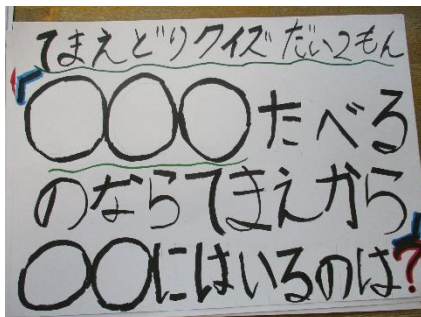 てまえどりクイズ だい2もん
「〇〇〇たべる
のならてまえから」
〇〇にはいるのは?